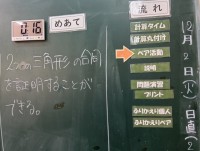 016
めあて
2つの三角形の合同
を証明することが
できる。
流れ
計算タイム
計算丸付け
ペア活動
説明
問題演習
プリント
ふりかえり個人
ふりかえりペア
12月2日(火)
日直(2